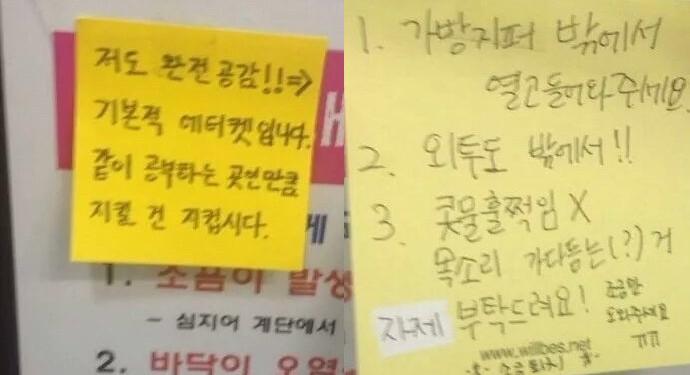 저도 완전공감!!⇒
기본적 에티켓입니다.
같이 공부하는 곳인만큼
지킬 건 지킵시다.
1. 소음이 발생
- 심지어 계단에서
2. 바닥이 오염
1. 가방지퍼 밖에서
열고들어와주세요
2. 외투도 밖에서!!
3. 콧물훌쩍임 X
목소리 가다듬는(?)거
자제 부탁드려요!
조금만
도와주세요
ㅠㅠ
www.willbes.net